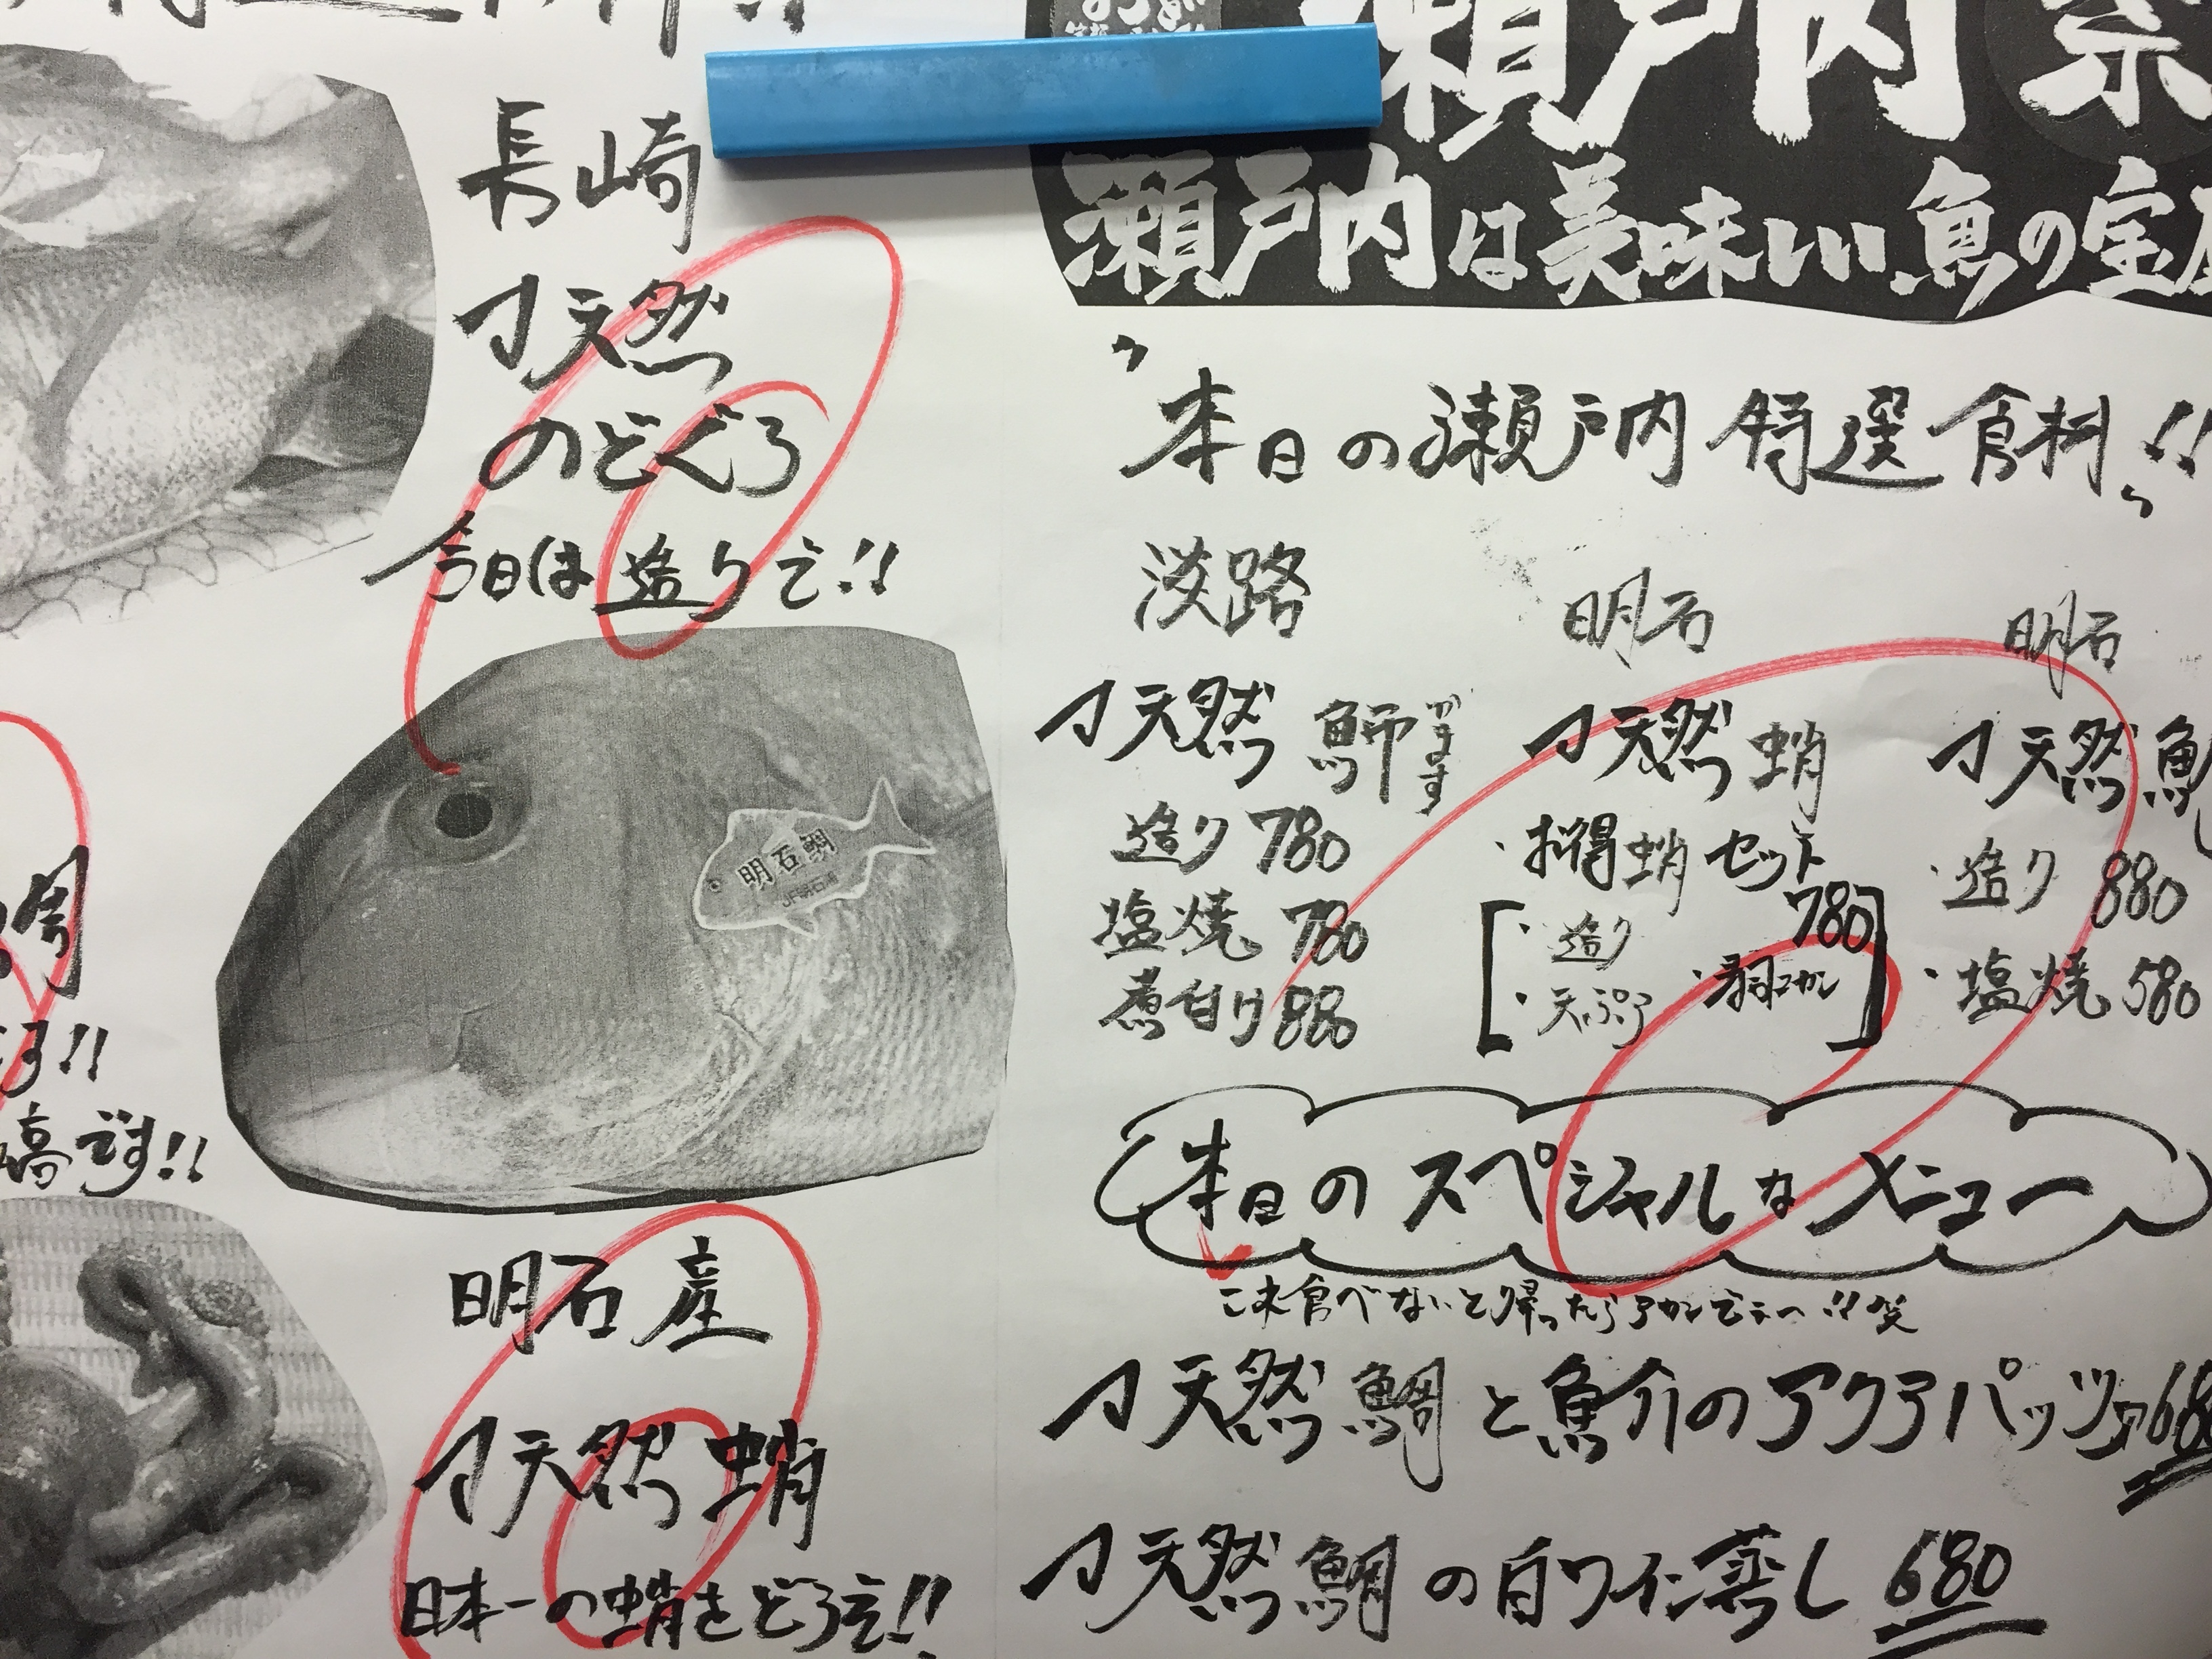 長崎
天然
のどぐろ
今日は造りで!!
明石鯛
JF明石浦
です!!
明石産
天然蛸
日本一の蛸をどうぞ!!
瀬戸内
瀬戸内は美味しい魚の宝
"本日の瀬戸内特選食材"!!
淡路
天然
造り 780
塩焼 780
煮付け 880
明石
天然蛸
・お得蛸セット
780
・造り
・天ぷら
明石
天然
・造り 880
・塩焼 580
本日のスペシャルなメニュー
天然鯛と魚介のアクアパッツァ
天然鯛の白ワイン蒸し 680